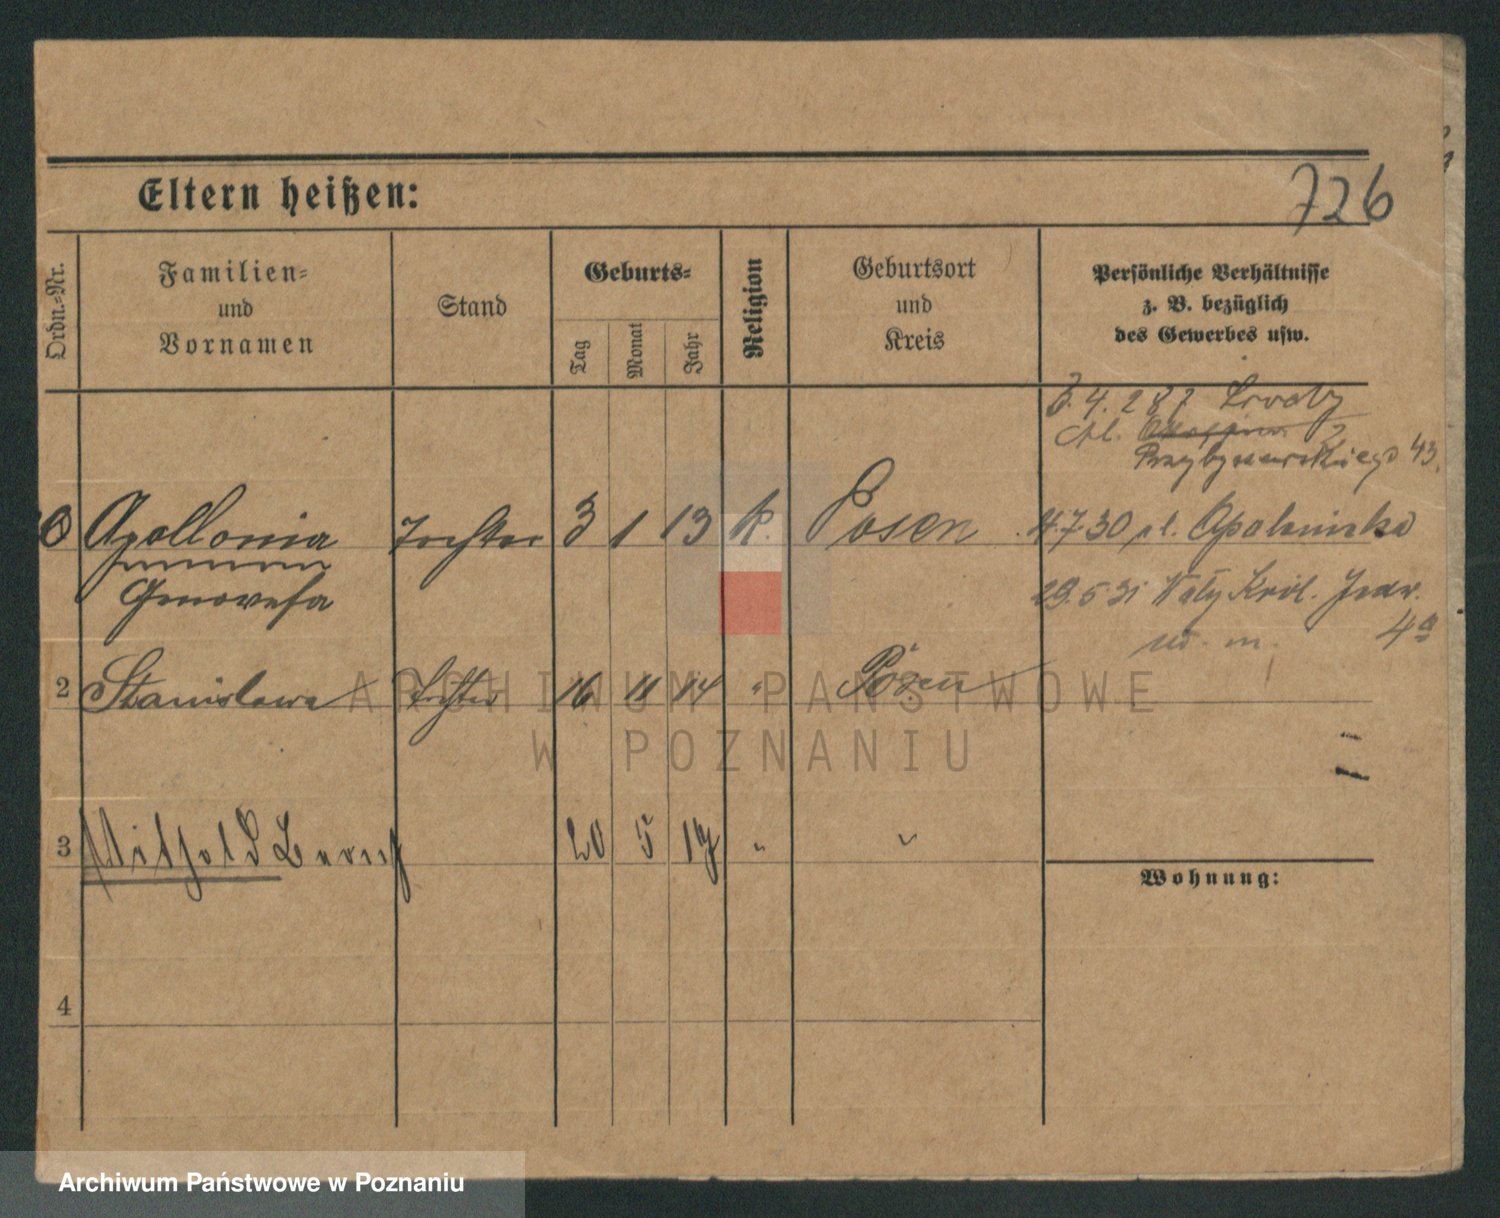 Eltern heißen:
726
Ordn.=Nr.
Familien=
und
Vornamen
Stand
Geburts=
Tag
Monat
Jahr
Religion
Geburtsort
und
Kreis
Persönliche Verhältnisse
z. B. bezüglich
des Gewerbes usw.
3.4.287
Przybyszewskiego 43
Apollonia Tochter 3 1 13 k. Posen 4.7.30 pl.
Genowefa
29.5.31 Wały Król. Jadw.
4a
2 Stanislawa Tochter 16 11 14 " Posen
3 Withold 20 5 17 " "
Wohnung:
4
ARCHIWUM PAŃSTWOWE
W POZNANIU
Archiwum Państwowe w Poznaniu